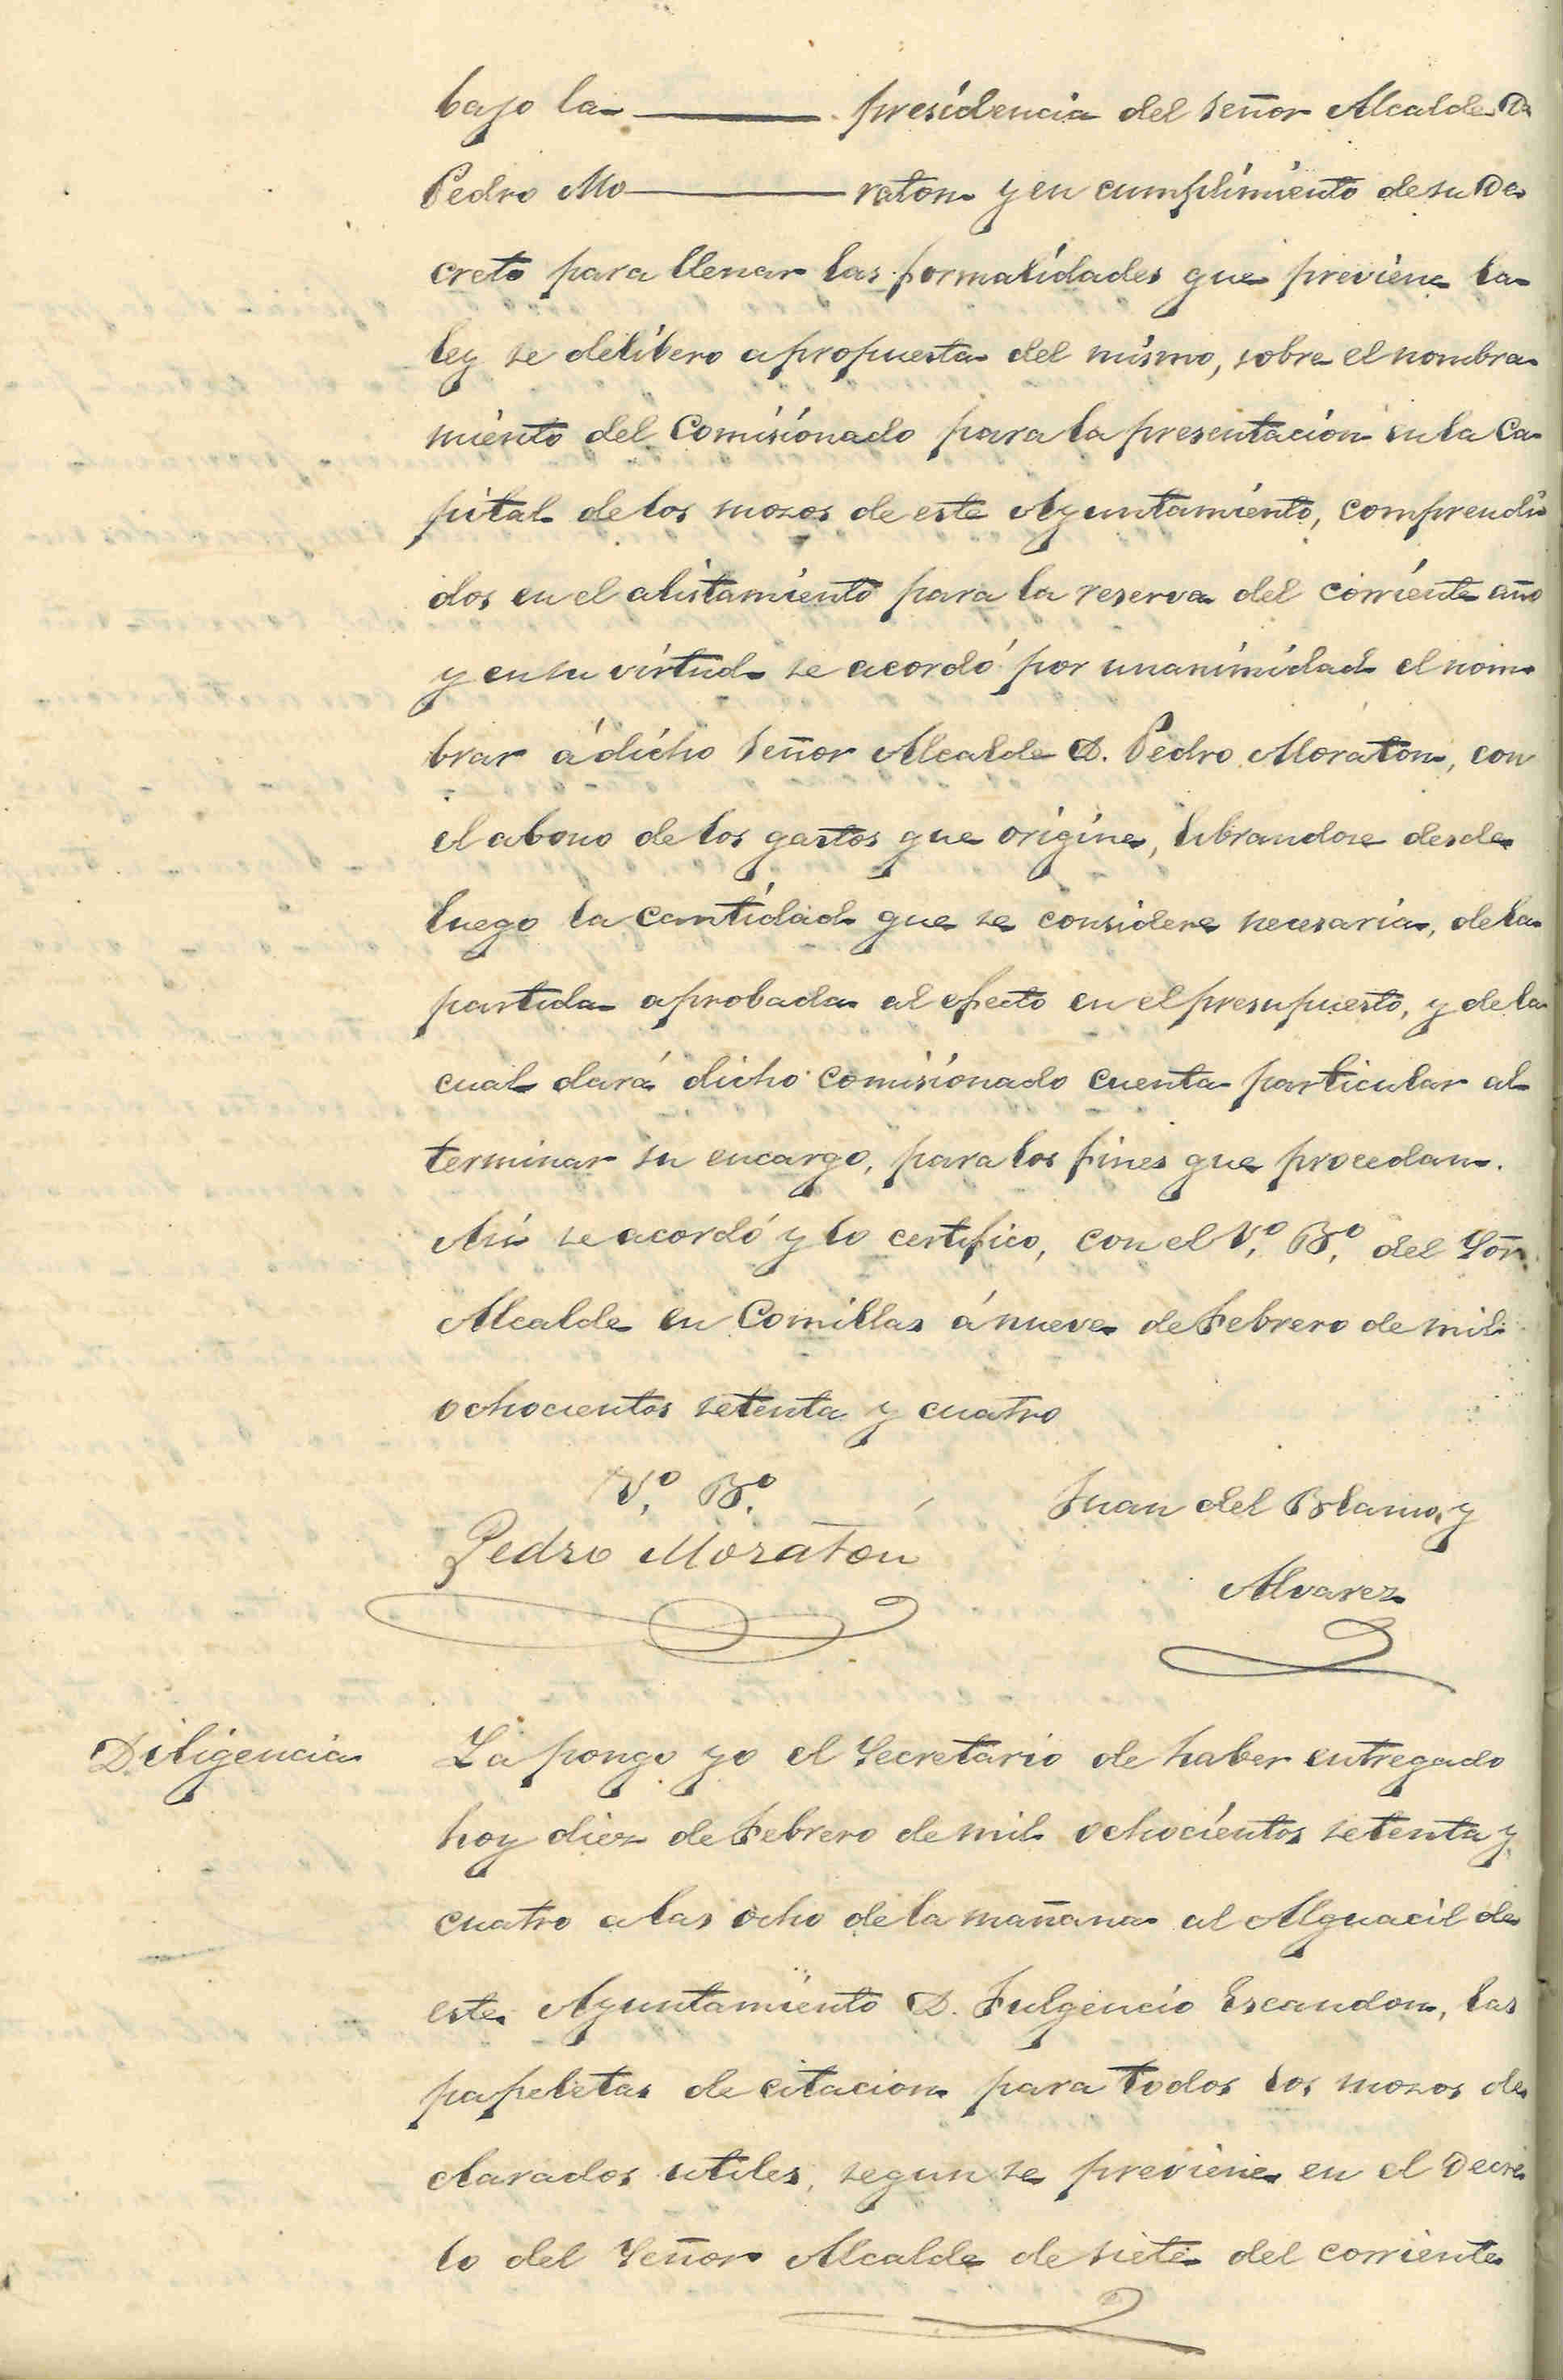 bajo la ——— presidencia del señor Alcalde D.
Pedro Mo ——— raton y en cumplimiento de su De
creto para llenar las formalidades que previene la
ley se delibero a propuesta del mismo, sobre el nombra
miento del Comisionado para la presentacion en la Ca
pital de los mozos de este Ayuntamiento, comprendi
dos en el alistamiento para la reserva del corriente año
y en su virtud se acordó por unanimidad el nom
brar á dicho señor Alcalde D. Pedro Moraton, con
el abono de los gastos que origine, librandose desde
luego la cantidad que se considere necesaria, de la
partida aprobada al efecto en el presupuesto, y de la
cual dará dicho comisionado cuenta particular al
terminar su encargo, para los fines que procedan.
Asi se acordó y lo certifico, con el V.º B.º del Sõr.
Alcalde en Comillas á nueve de Febrero de mil
ochocientos setenta y cuatro
V.º B.º
Pedro Moraton
Juan del Blamo, y
Alvarez
Diligencia
La pongo yo el Secretario de haber entregado
hoy diez de Febrero de mil ochocientos setenta y
cuatro a las ocho de la mañana al Alguacil de
este Ayuntamiento D. Fulgencio Escandon, las
papeletas de citacion para todos los mozos de
clarados utiles, segun se previene en el Decre
to del Señor Alcalde de siete del corriente